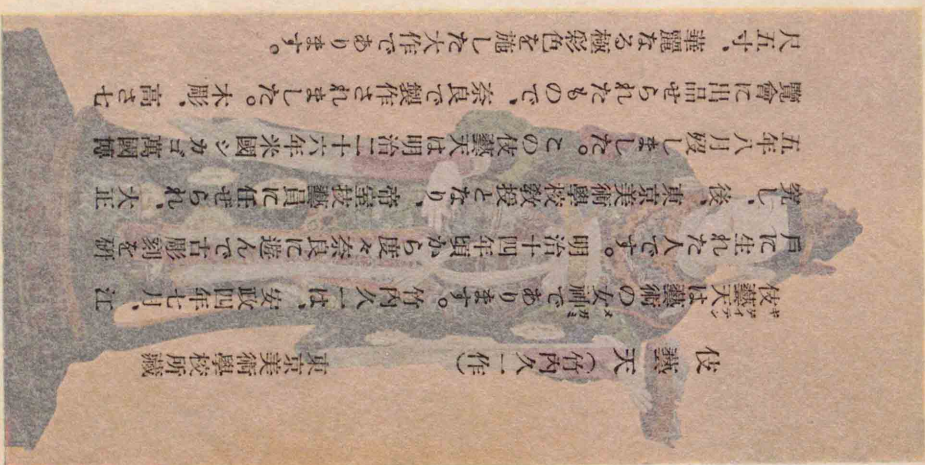 伎藝天(竹內久一作) 東京美術學校所藏
伎藝天は藝術の女神であります。竹內久一は、安政四年七月、江
戶に生れた人です。明治十四年頃から度々奈良に遊んで古彫刻を硏
究し、後、東京美術學校敎授となり、帝室技藝員に任ぜられ、大正
五年八月歿しました。この伎藝天は明治二十六年米國シカゴ萬國博
覽會に出品せられたもので、奈良で製作されました。木彫、高さ七
尺五寸、華麗なる極彩色を施した大作であります。